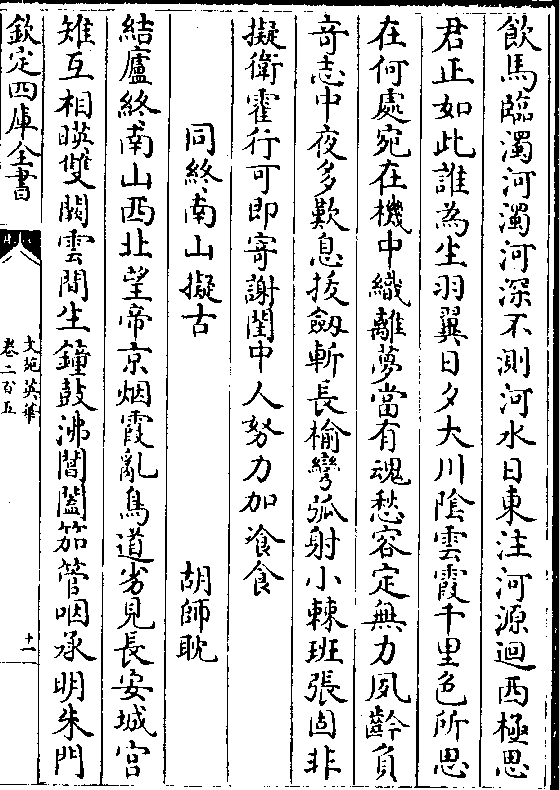 飲馬臨濁河濁河深不測河水日東注河源迴西極思
君正如此誰為生羽翼日夕大川陰雲霞千里色所思
在何處宛在機中織離夢當有魂愁容定無力夙齡負
竒志中夜多歎息拔劔斬長榆彎弧射小棘班張固非
擬衛霍行可即寄謝閨中人努力加飡食
同終南山擬古　胡師耽
結廬終南山西北望帝京烟霞亂鳥道劣見長安城宫
雉互相暎雙闕雲間生鐘鼓沸閶闔笳管咽承明朱門
欽定四庫全書
文苑英華
卷二百五
十一